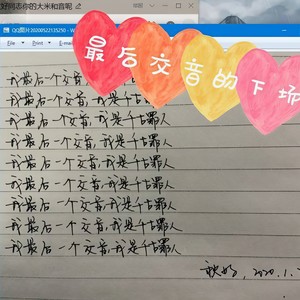 好同志你的大米和音呢
QQ图片20200522135250
最后交音的下场
我最后一个交音,我是千古罪人
我最后一个交音,我是千古罪人
我最后一个交音,我是千古罪人
我最后一个交音,我是千古罪人
我最后一个交音,我是千古罪人
我最后一个交音,我是千古罪人
我最后一个交音,我是千古罪人
我最后一个交音,我是千古罪人
我最后一个交音,我是千古罪人